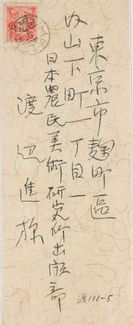 東京市麹町區
内山下町一丁目一
日本農民美術研究所出版部
渡辺進様
渡111-5